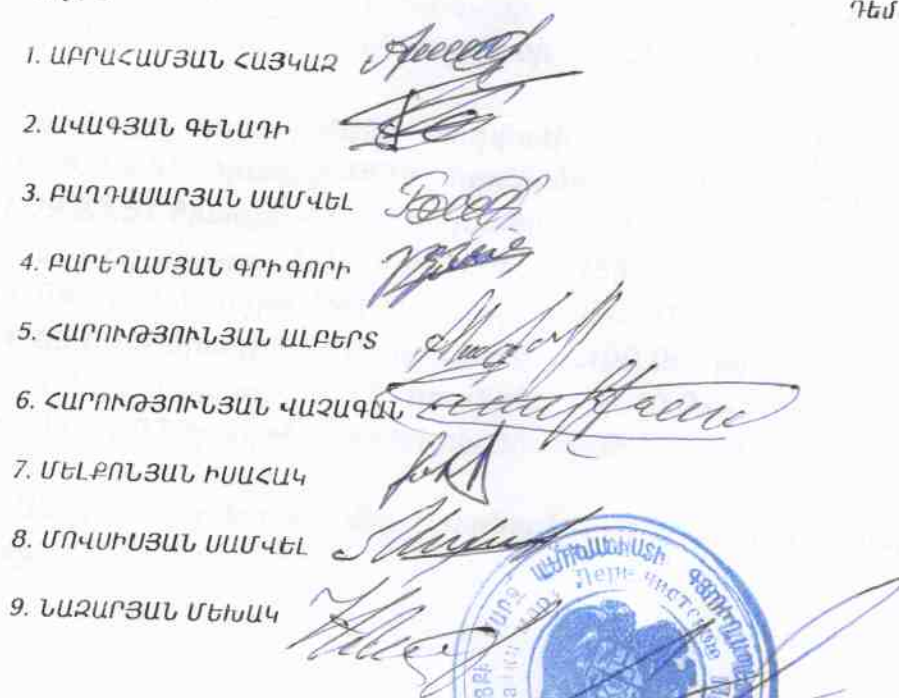 Դեմ
1. ԱԲՐԱՀԱՄՅԱՆ ՀԱՅԿԱԶ
2. ԱՎԱԳՅԱՆ ԳԵՆԱԴԻ
3. ԲԱՂԴԱՍԱՐՅԱՆ ՍԱՄՎԵԼ
4. ԲԱՐԵՂԱՄՅԱՆ ԳՐԻԳՈՐԻ
5. ՀԱՐՈՒԹՅՈՒՆՅԱՆ ԱԼԲԵՐՏ
6. ՀԱՐՈՒԹՅՈՒՆՅԱՆ ՎԱՉԱԳԱՆ
7. ՄԵԼՔՈՆՅԱՆ ԻՍԱՀԱԿ
8. ՄՈՎՍԻՍՅԱՆ ՍԱՄՎԵԼ
9. ՆԱԶԱՐՅԱՆ ՄԵԽԱԿ